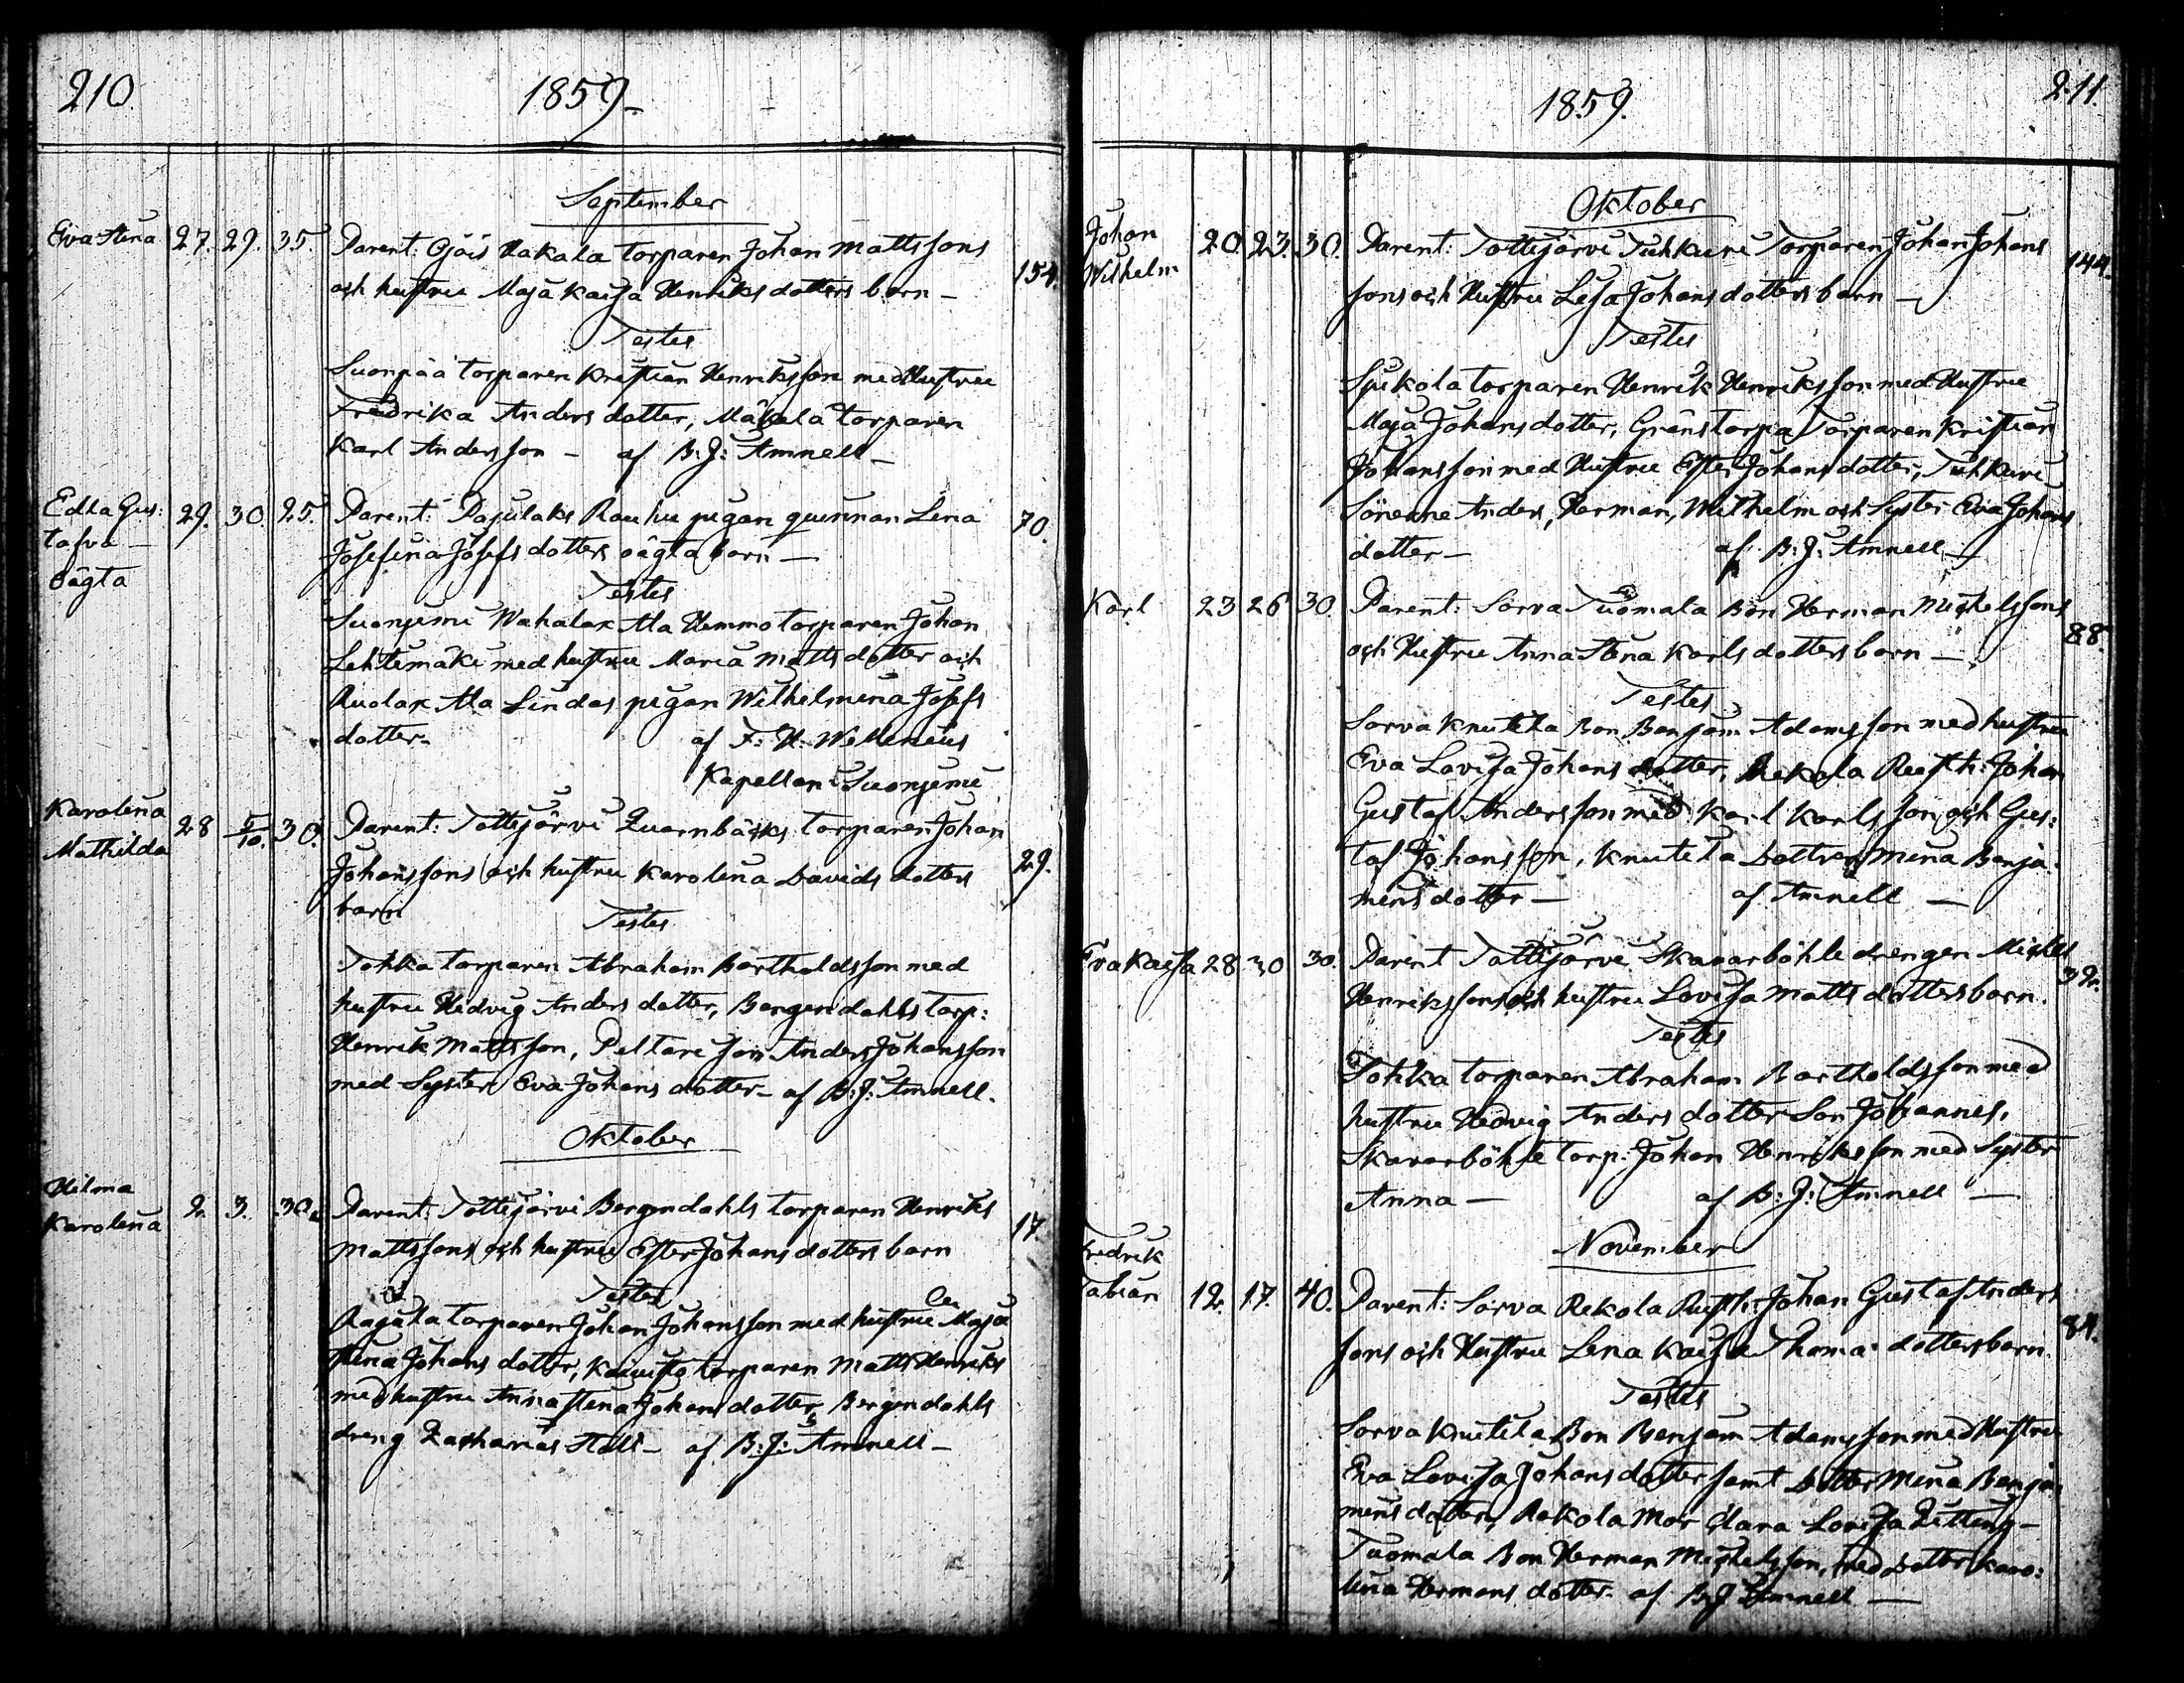 210.
1859.
September
Eva Stina 27. 29. 35. Parent: Ojois Hakala torparen Johan Mattssons
och hustru Maja Kaisa Henriksdotters barn — 154.
Testes
Suonpää torparen Kristian Henriksson med Hustru
Fredrika Andersdotter, Mäkelä torparen
Karl Andersson — af B: J: Amnell —
Edla Gus: 29. 30. 25. Parent: Pajulaks Rauhu pigan quinnan Lena 70.
tafva — Josefina Josefsdotters oägta barn —
oägta
Testes
Suonjemi Wahalax Ala Hemmo torparen Johan
Lehtimäki med hustru Maria Mattsdotter och
Ruolax Ala Lindas pigan Wilhelmina Josefs
dotter. af F: H: Wellenius
Kapellan i Suonjemi
Karolina 28 5/10. 30. Parent: Tottijärvi Quarnbäcks torparen Johan
Mathilda Johanssons och hustru Karolina Davidsdotters 29.
barn
Testes
Tokka torparen Abraham Bartholdsson med
hustru Hedvig Andersdotter, Bergendahls torp:
Henrik Mattsson, Peltari son Anders Johansson
med Syster Eva Johansdotter — af B: J: Amnell.
Oktober
Hilma 2. 3. 30. Parent: Tottijärvi Bergendahls torparen Henriks 17.
Karolina Mattssons och hustru Ester Johansdotters barn
Testes
Rajula torparen Johan Johansson med hustru Maja
Stina Johansdotter, torparen Matts Henriks
med hustru Anna Stina Johansdotter, Bergendahls
dreng Zacharias Stål — af B: J: Amnell —
211.
1859.
Oktober
Johan 20. 23. 30. Parent: Tottijärvi Tuhkuri Torparen Johan Johans 144.
Wilhelm sons och Hustru Lisa Johansdotters barn —
Testes
Sjukola torparen Henrik Henriksson med Hustru
Maja Johansdotter, Gränstorpa Torparen Kristian
Johansson med Hustru Ester Johansdotter, Tuhkuri
Sönerne Anders, Herman, Wilhelm och Syster Eva Johans
dotter — af B: J: Amnell —
Karl 23 26 30. Parent: Sorva Tuomala Bon Herman Michelssons
och Hustru Anna Stina Karlsdotters barn — 88.
Testes
Sorva Knutila Bon Benjam Adamsson med hustru
Eva Lovisa Johansdotter, Rekola Rusth: Johan
Gustaf Andersson med Karl Karlsson och Gus:
taf Johansson, Knutila Dottren Mina Benja:
minsdotter — af Amnell —
Eva Kaisa 28 30 30. Parent Tottijärvi Skavarböhle drengen Michel 32.
Henrikssons och hustru Lovisa Mattsdotters barn.
Testes
Tokka torparen Abraham Bartholdsson med
hustru Hedvig Andersdotter Son Johannes,
Skavarböhle torp: Johan Henriksson med Syster
Anna — af B: J: Amnell —
November
Fredrik
Fabian 12. 17. 40. Parent: Sorva Rekola Rusth: Johan Gustaf Anders
sons och Hustru Lena Kaisa Thomasdotters barn. 84.
Testes
Sorva Knutila Bon Benjam Adamsson med Hustru
Eva Lovisa Johansdotter samt Dotter Mina Benja:
minsdotter, Rekola Mor Clara Lovisa Zitting —
Tuomala Bon Herman Michelsson, med Dotter Karo:
lina Hermansdotter. af B J Amnell —